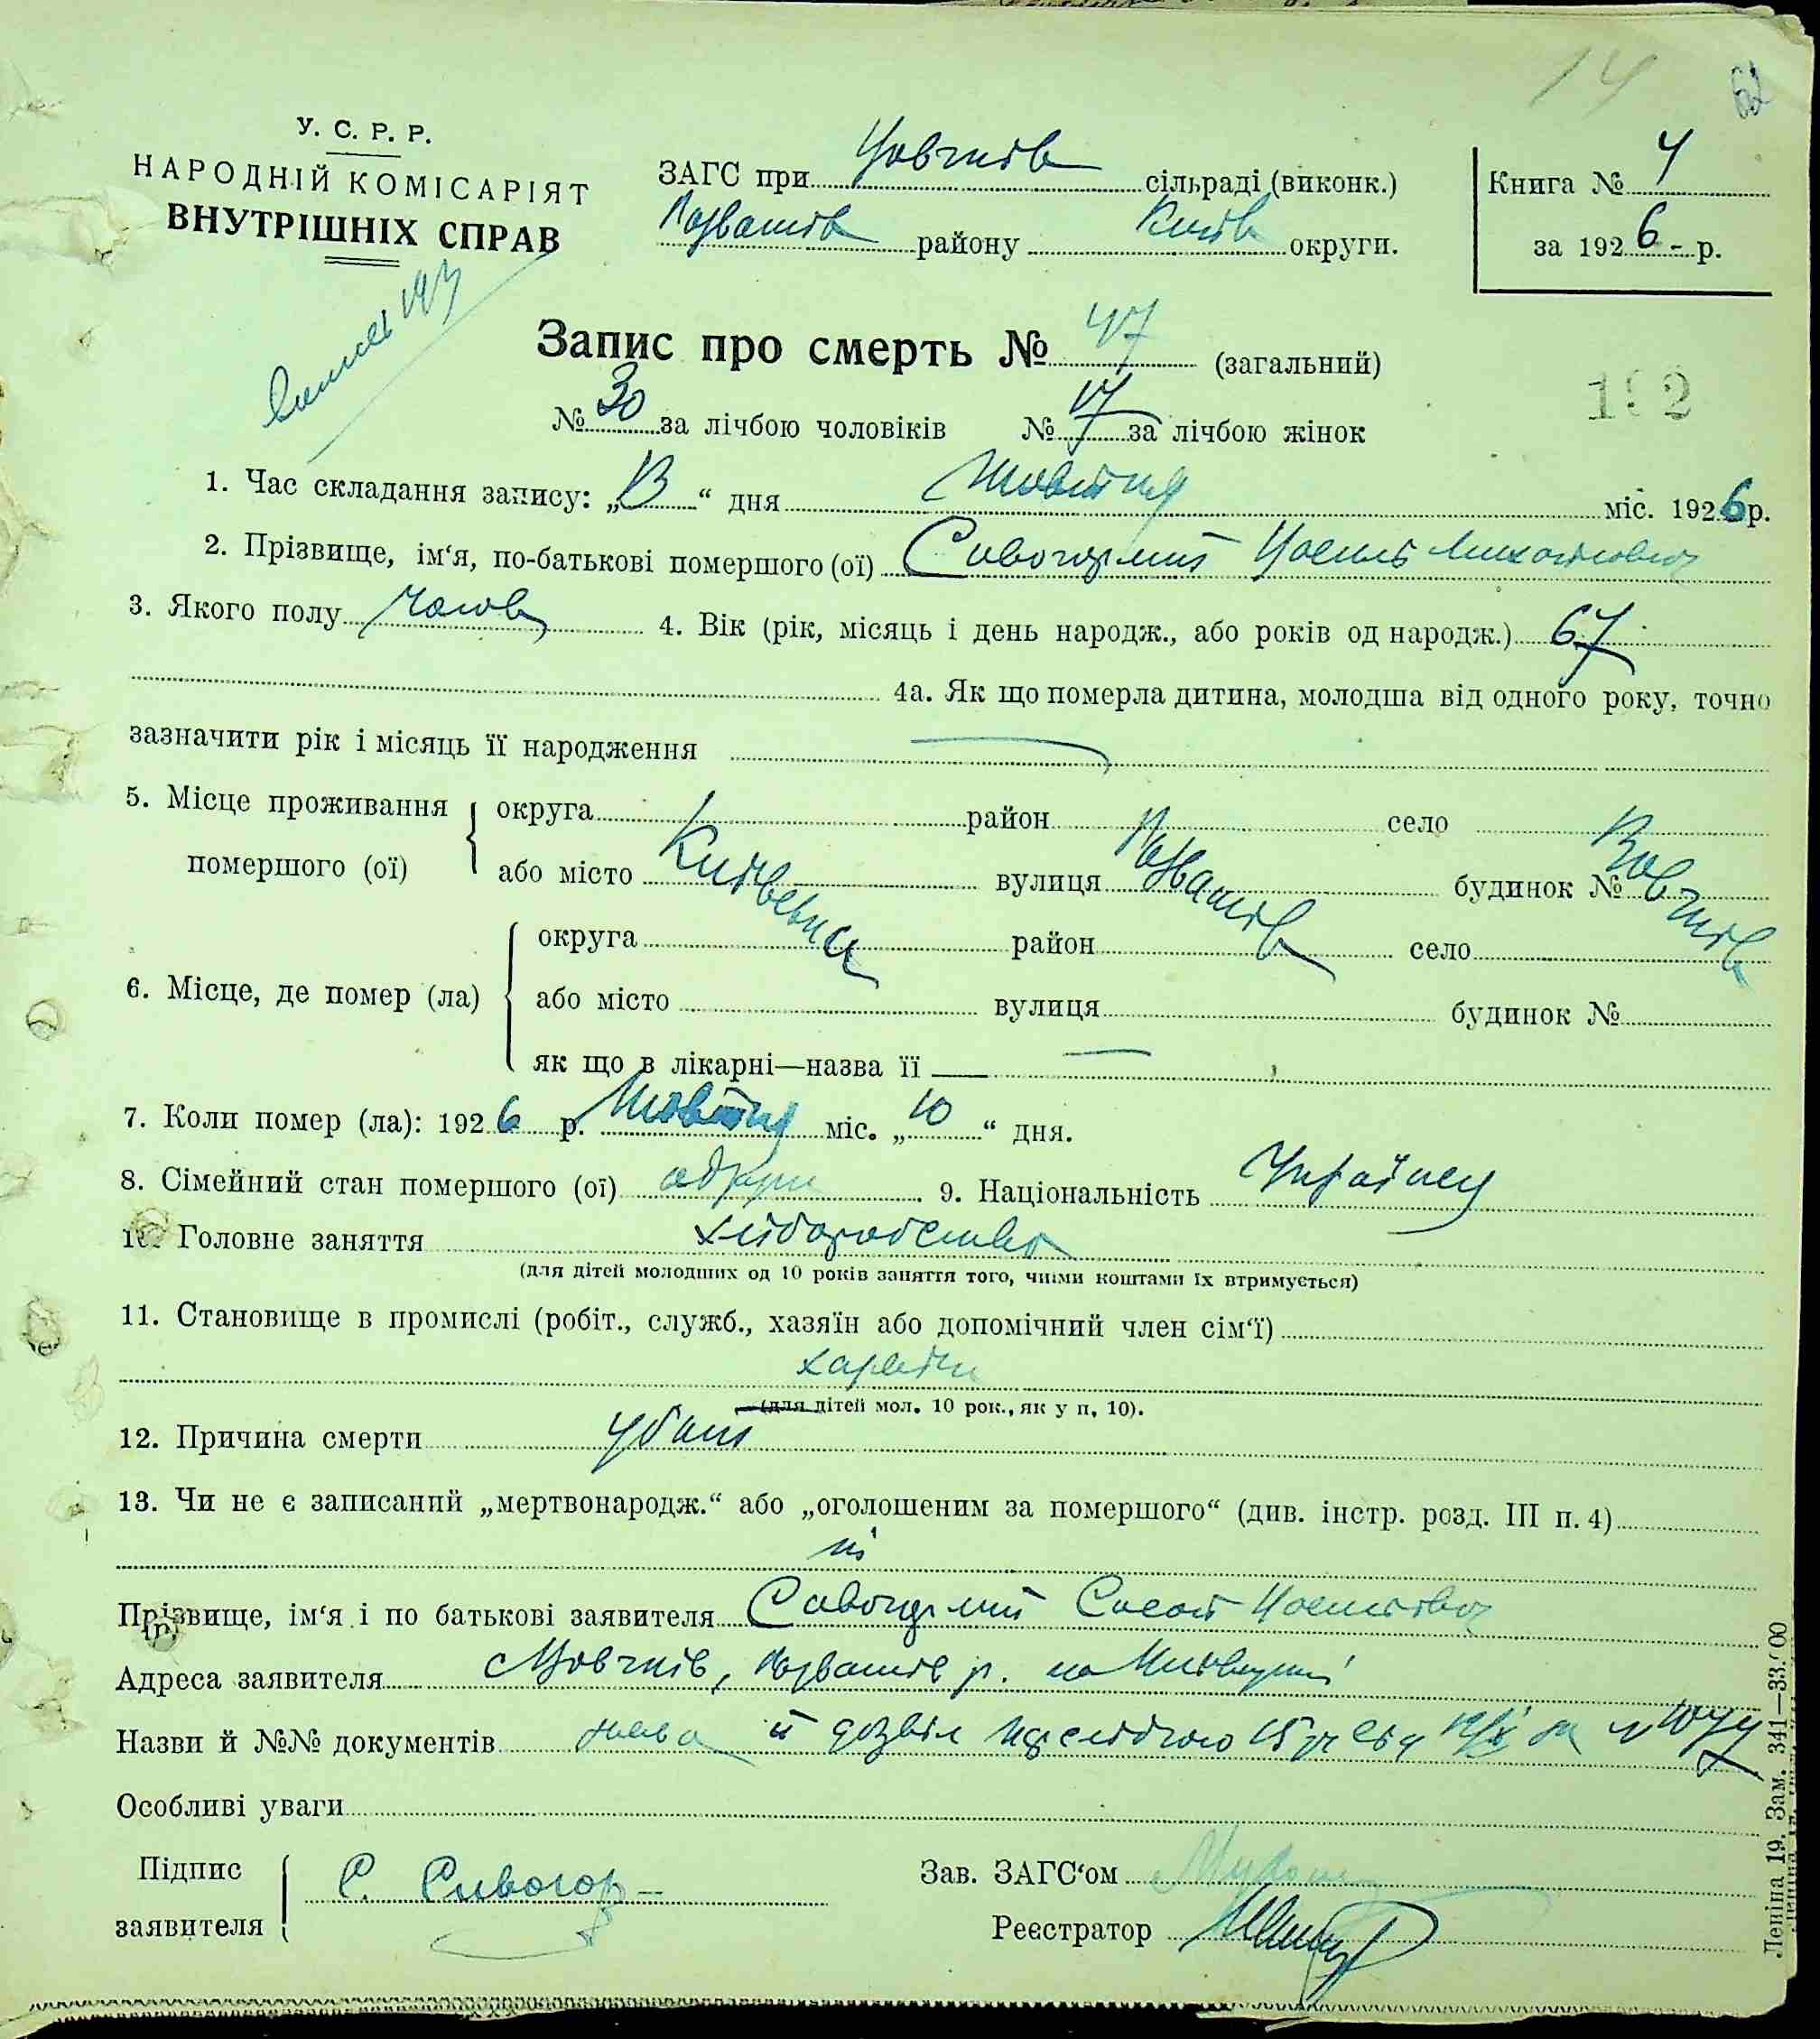 14
62
У. С. Р. Р.
НАРОДНІЙ КОМІСАРІЯТ
ВНУТРІШНІХ СПРАВ
ЗАГС при Вовчків сільраді (виконк.)
району Київ округи.
Книга № 4
за 1926 р.
Запис про смерть № 47 (загальний)
192
№ 30 за лічбою чоловіків № 17 за лічбою жінок
1. Час складання запису: „13“ дня Жовтня міс. 1926 р.
2. Прізвище, ім‘я, по-батькові помершого (ої) Сивогорлий Йосип Михайлович
3. Якого полу чолов 4. Вік (рік, місяць і день народж., або років од народж.) 67
4а. Як що померла дитина, молодша від одного року, точно
зазначити рік і місяць її народження
5. Місце проживання помершого (ої) округа район село
або місто Київська вулиця будинок № Вовчків
6. Місце, де помер (ла) округа район село
або місто вулиця будинок №
як що в лікарні—назва її —
7. Коли помер (ла): 1926 р. Жовтня міс. „10“ дня.
8. Сімейний стан помершого (ої) одруж 9. Національність Українец
10. Головне заняття хліборобство
(для дітей молодших од 10 років заняття того, чиїми коштами їх втримується)
11. Становище в промислі (робіт., служб., хазяїн або допомічний член сім‘ї)
хазяїн
(для дітей мол. 10 рок., як у п. 10).
12. Причина смерти убит
13. Чи не є записаний „мертвонародж.“ або „оголошеним за помершого“ (див. інстр. розд. III п. 4)
ні
Прізвище, ім‘я і по батькові заявителя Сивогорлий Йосипович
Адреса заявителя Вовчків, р. на Київщині
Назви й №№ документів заява й дозвіл
Особливі уваги
Підпис заявителя С. Сивогор
Зав. ЗАГС‘ом
Реєстратор
Леніна 19. Зам. 341—33.000